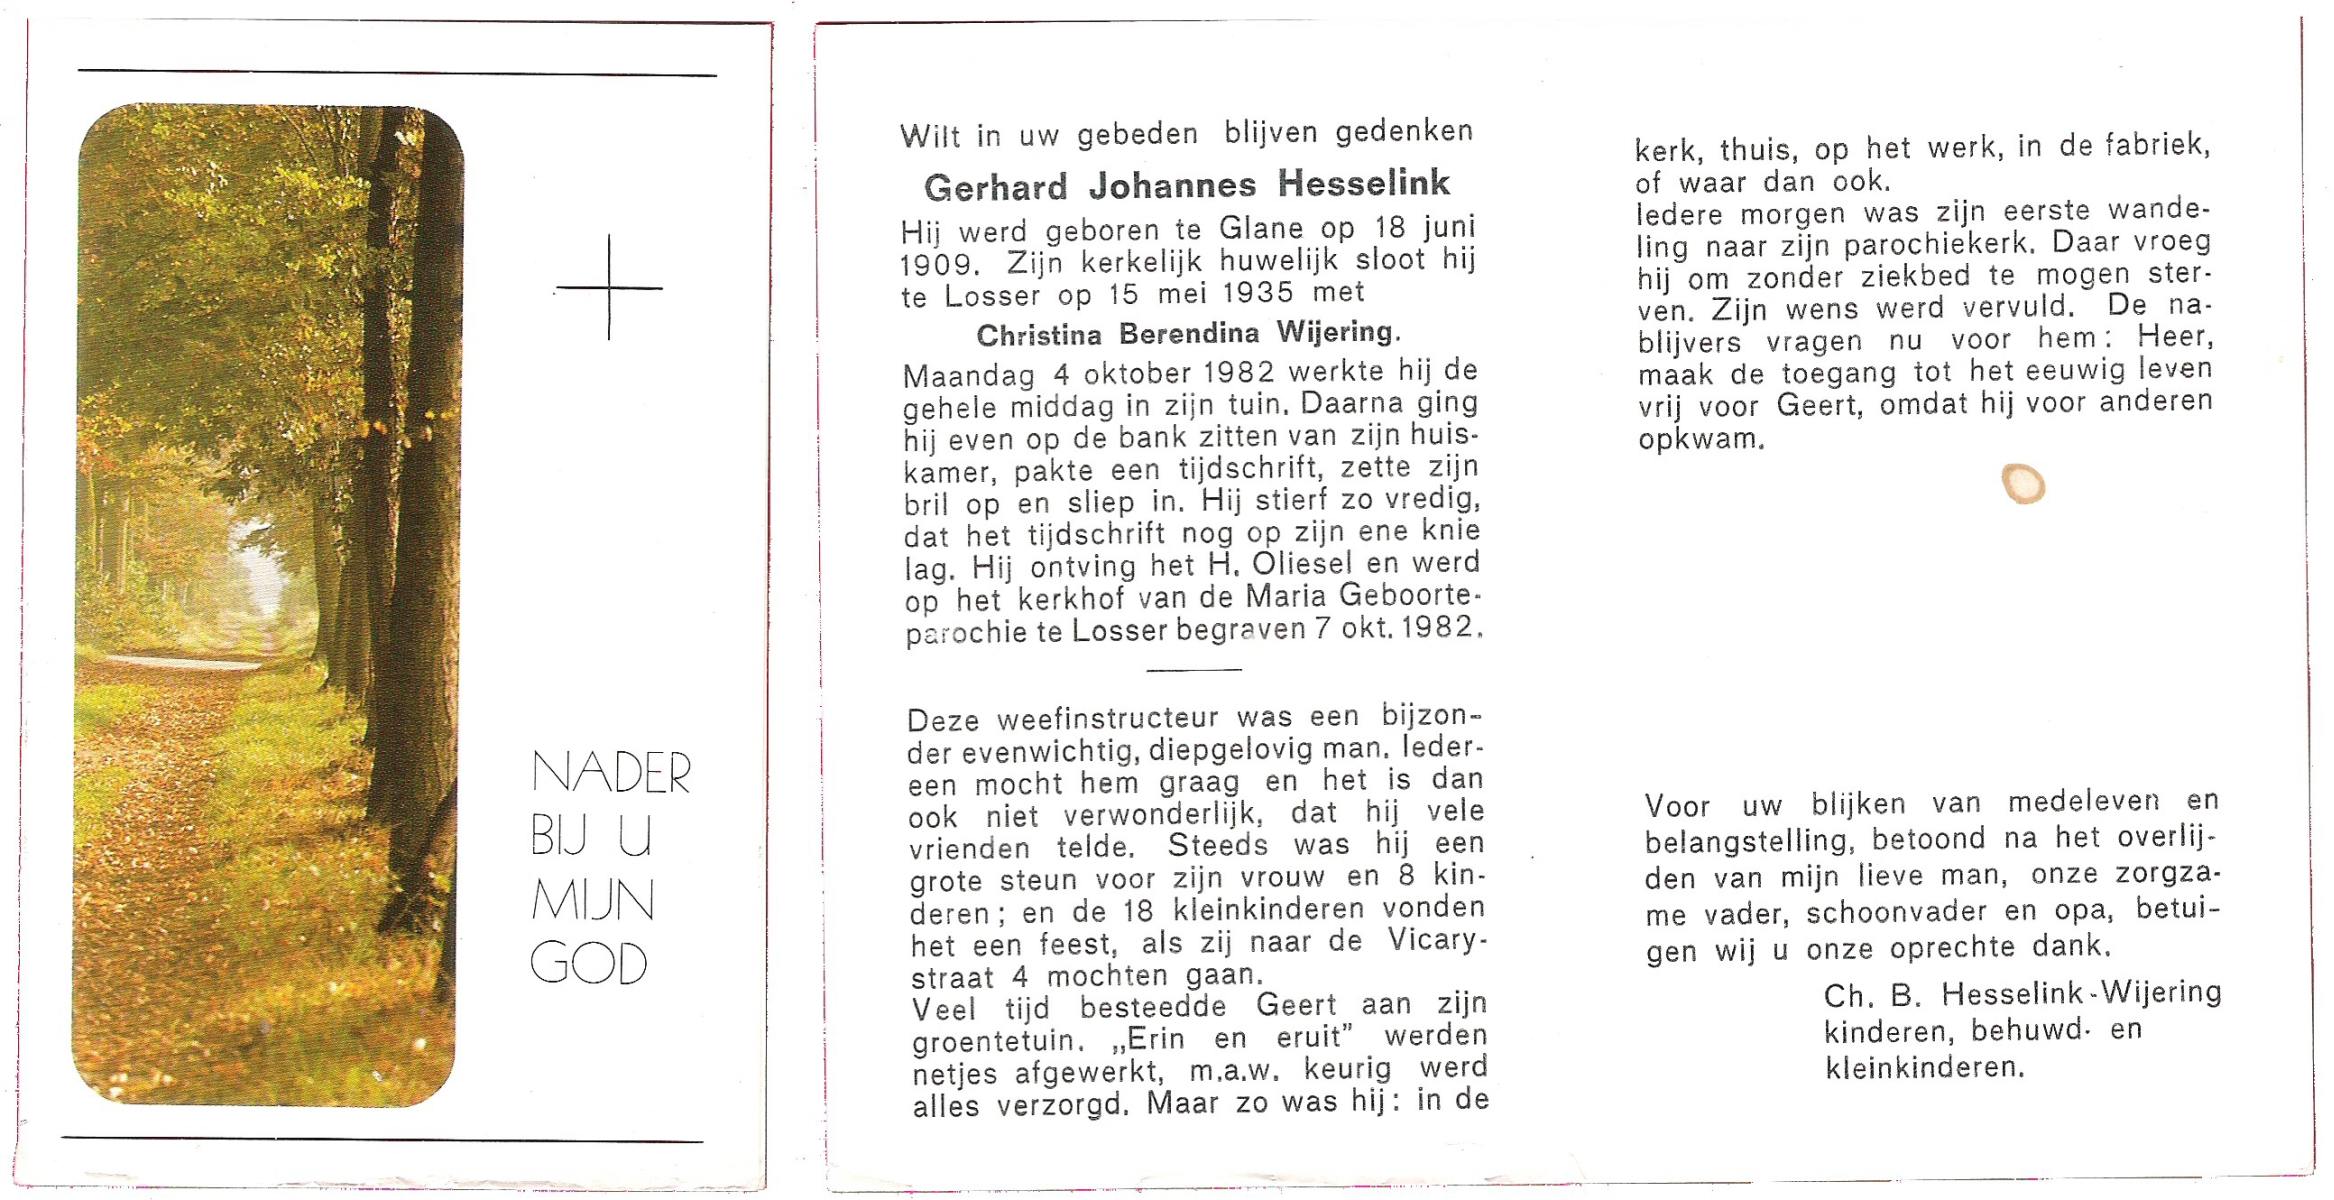 NADER
BIJ U
MIJN
GOD
Wilt in uw gebeden blijven gedenken
Gerhard Johannes Hesselink
Hij werd geboren te Glane op 18 juni
1909. Zijn kerkelijk huwelijk sloot hij
te Losser op 15 mei 1935 met
Christina Berendina Wijering.
Maandag 4 oktober 1982 werkte hij de
gehele middag in zijn tuin. Daarna ging
hij even op de bank zitten van zijn huis-
kamer, pakte een tijdschrift, zette zijn
bril op en sliep in. Hij stierf zo vredig,
dat het tijdschrift nog op zijn ene knie
lag. Hij ontving het H. Oliesel en werd
op het kerkhof van de Maria Geboorte-
parochie te Losser begraven 7 okt. 1982.
Deze weefinstructeur was een bijzon-
der evenwichtig, diepgelovig man. Ieder-
een mocht hem graag en het is dan
ook niet verwonderlijk, dat hij vele
vrienden telde. Steeds was hij een
grote steun voor zijn vrouw en 8 kin-
deren; en de 18 kleinkinderen vonden
het een feest, als zij naar de Vicary-
straat 4 mochten gaan.
Veel tijd besteedde Geert aan zijn
groentetuin. „Erin en eruit” werden
netjes afgewerkt, m.a.w. keurig werd
alles verzorgd. Maar zo was hij: in de
kerk, thuis, op het werk, in de fabriek,
of waar dan ook.
Iedere morgen was zijn eerste wande-
ling naar zijn parochiekerk. Daar vroeg
hij om zonder ziekbed te mogen ster-
ven. Zijn wens werd vervuld. De na-
blijvers vragen nu voor hem: Heer,
maak de toegang tot het eeuwig leven
vrij voor Geert, omdat hij voor anderen
opkwam.
Voor uw blijken van medeleven en
belangstelling, betoond na het overlij-
den van mijn lieve man, onze zorgza-
me vader, schoonvader en opa, betui-
gen wij u onze oprechte dank.
Ch. B. Hesselink-Wijering
kinderen, behuwd- en
kleinkinderen.